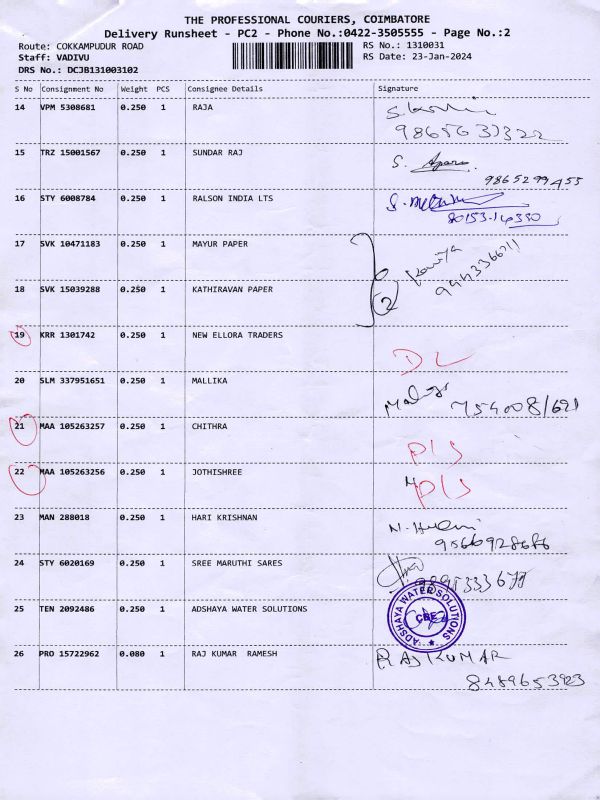 THE PROFESSIONAL COURIERS, COIMBATORE
Delivery Runsheet - PC2 - Phone No.:0422-3505555 - Page No.:2
Route: COKKAMPUDUR ROAD RS No.: 1310031
Staff: VADIVU RS Date: 23-Jan-2024
DRS No.: DCJB131003102
S No Consignment No Weight PCS Consignee Details Signature
14 VPM 5308681 0.250 1 RAJA
15 TRZ 15001567 0.250 1 SUNDAR RAJ S.
9865299455
16 STY 6008784 0.250 1 RALSON INDIA LTS
80153-14330
17 SVK 10471183 0.250 1 MAYUR PAPER
18 SVK 15039288 0.250 1 KATHIRAVAN PAPER 2
19 KRR 1301742 0.250 1 NEW ELLORA TRADERS
DL
20 SLM 337951651 0.250 1 MALLIKA
21 MAA 105263257 0.250 1 CHITHRA
P/S
22 MAA 105263256 0.250 1 JOTHISHREE
P/S
23 MAN 288018 0.250 1 HARI KRISHNAN
9566928686
24 STY 6020169 0.250 1 SREE MARUTHI SARES
25 TEN 2092486 0.250 1 ADSHAYA WATER SOLUTIONS
ADSHAYA WATER SOLUTIONS
CBE
26 PRO 15722962 0.080 1 RAJ KUMAR RAMESH RAJKUMAR
8489653923